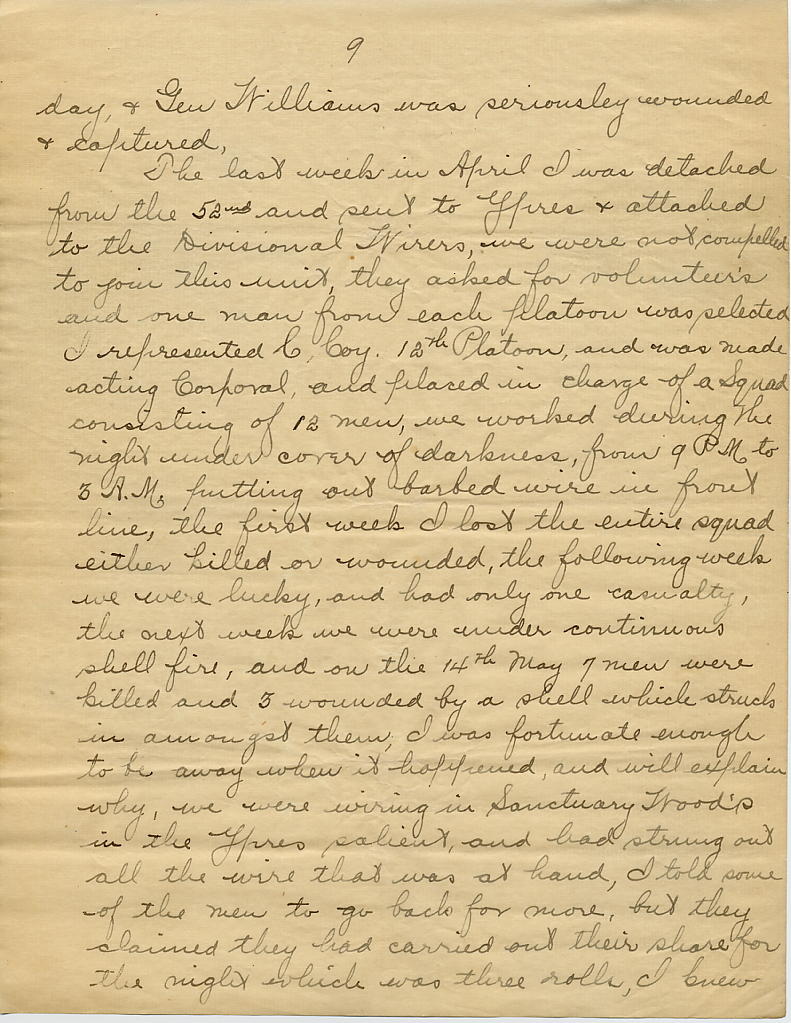 9
day, & Gen Williams was seriousley wounded
& captured,
The last week in April I was detached
from the 52nd and sent to Ypres & attached
to the Divisional Wirers, we were not compelled
to join this unit, they asked for volunteer's
and one man from each platoon was selected
I represented C, Coy. 12th Platoon, and was made
acting Corporal, and placed in charge of a Squad
consisting of 12 men, we worked during the
night under cover of darkness, from 9 P.M. to
3 A.M. putting out barbed wire in front
line, the first week I lost the entire squad
either killed or wounded, the following week
we were lucky, and had only one casualty,
the next week we were under continuous
shell fire, and on the 14th May 7 men were
killed and 3 wounded by a shell which struck
in amongst them, I was fortunate enough
to be away when it happened, and will explain
why, we were wiring in Sanctuary Wood's
in the Ypres salient, and had strung out
all the wire that was at hand, I told some
of the men to go back for more, but they
claimed they had carried out their share for
the night which was three rolls, I knew